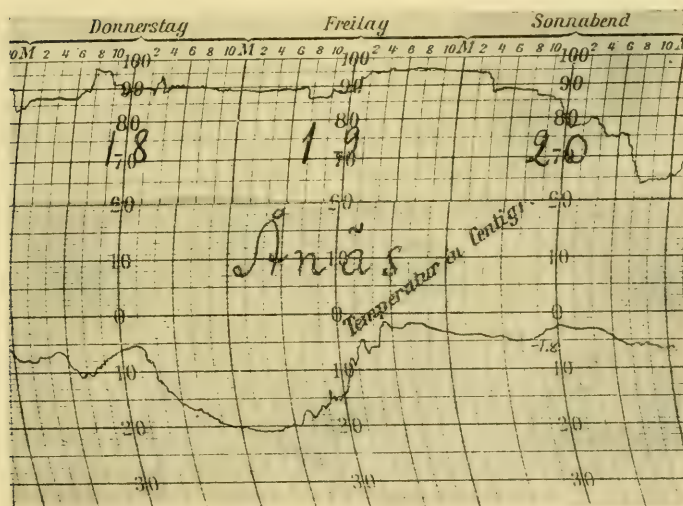 Donnerstag Freitag Sonnabend
10 M 2 4 6 8 10 2 4 6 8 10 M 2 4 6 8 10 2 4 6 8 10 M 2 4 6 8 10 2 4 6 8 10
100 100 100
90 90 90
80 80 80
18 19 20
70 70 70
60 60 60
Anås
10 10 10
Temperatur in Centigr.
0 0 0
10 10 10
20 20 20
30 30 30